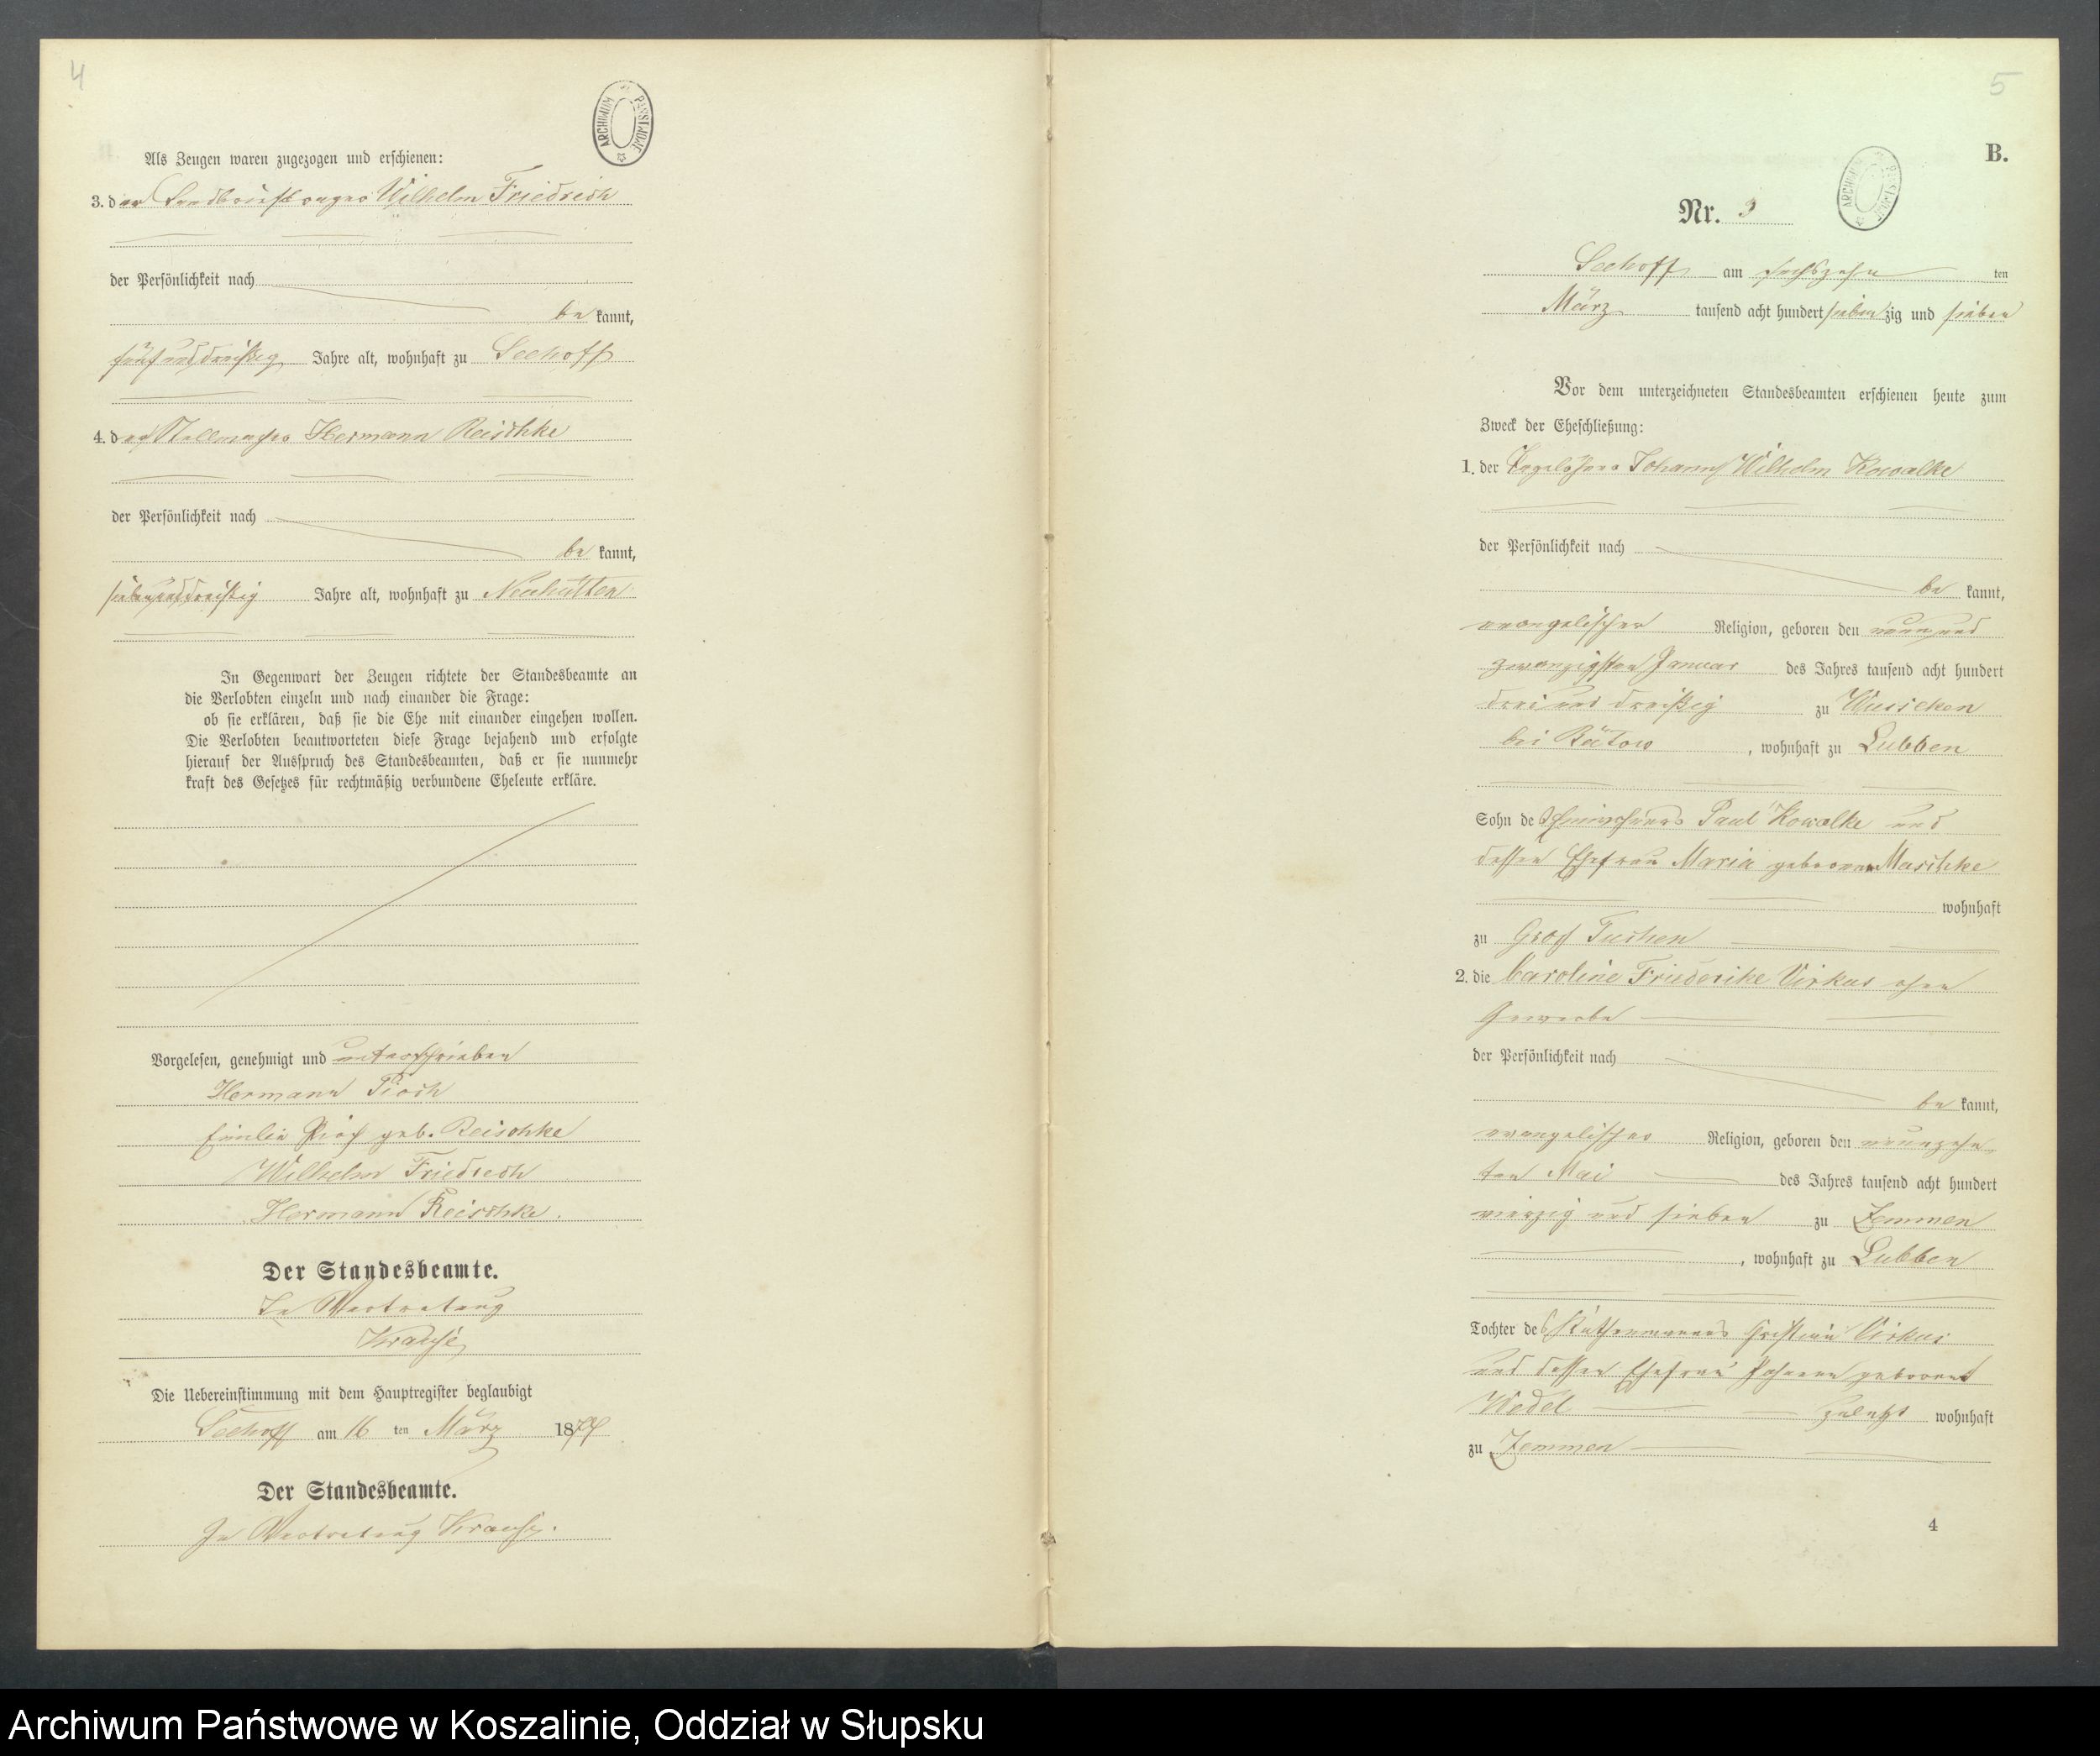 4
ARCHIWUM PAŃSTWOWE
Als Zeugen waren zugezogen und erschienen:
3. der Landbriefträger Wilhelm Friedrich
der Persönlichkeit nach
be kannt,
fünfunddreißig Jahre alt, wohnhaft zu Seehoff
4. der Stellmacher Hermann Reischke
der Persönlichkeit nach
be kannt,
siebenunddreißig Jahre alt, wohnhaft zu Neuhütten
In Gegenwart der Zeugen richtete der Standesbeamte an
die Verlobten einzeln und nach einander die Frage:
ob sie erklären, daß sie die Ehe mit einander eingehen wollen.
Die Verlobten beantworteten diese Frage bejahend und erfolgte
hierauf der Ausspruch des Standesbeamten, daß er sie nunmehr
kraft des Gesetzes für rechtmäßig verbundene Eheleute erkläre.
Vorgelesen, genehmigt und unterschrieben
Hermann Pioch
Emilie Pioch geb. Reischke
Wilhelm Friedrich
Hermann Reischke.
Der Standesbeamte.
In Vertretung
Krause
Die Uebereinstimmung mit dem Hauptregister beglaubigt
Seehoff am 16 ten März 1877
Der Standesbeamte.
In Vertretung Krause.
5
B.
ARCHIWUM PAŃSTWOWE
Nr. 3
Seehoff am sechszehn ten
März tausend acht hundert sieben zig und sieben
Vor dem unterzeichneten Standesbeamten erschienen heute zum
Zweck der Eheschließung:
1. der Tagelöhner Johann Wilhelm Kowalke
der Persönlichkeit nach
be kannt,
evangelischer Religion, geboren den neun und
zwanzigsten Januar des Jahres tausend acht hundert
drei und dreißig zu Wusseken
bei Bütow, wohnhaft zu Lubben
Sohn des Paul Kowalke und
dessen Ehefrau Maria geborenen Maschke
wohnhaft
zu Groß Tuchen
2. die Caroline Friederike Virkus ohne
Gewerbe
der Persönlichkeit nach
be kannt,
evangelischer Religion, geboren den neunzehn
ten Mai des Jahres tausend acht hundert
vierzig und sieben zu Zemmen
, wohnhaft zu Lubben
Tochter des Käthnermanns Christian Virkus
und dessen Ehefrau Johanne geborene
Wedel zuletzt wohnhaft
zu Zemmen
4
Archiwum Państwowe w Koszalinie, Oddział w Słupsku